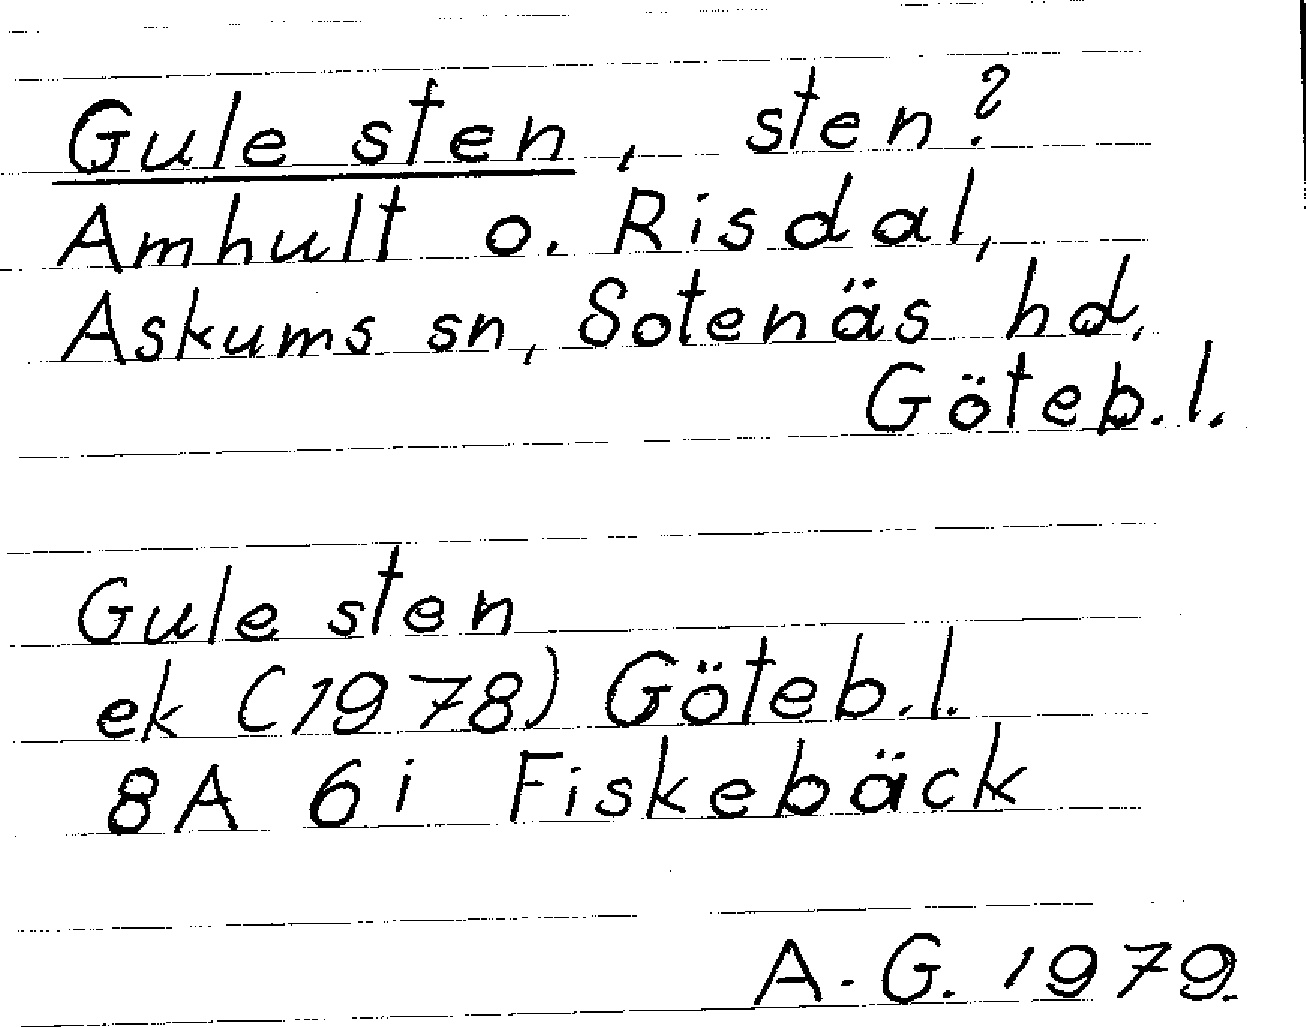 Gule sten, sten?
Amhult o. Risdal,
Askums sn, Sotenäs hd.
Göteb. l.
Gule sten
ek (1978) Göteb. l.
8A 6i Fiskebäck
A. G. 1979.